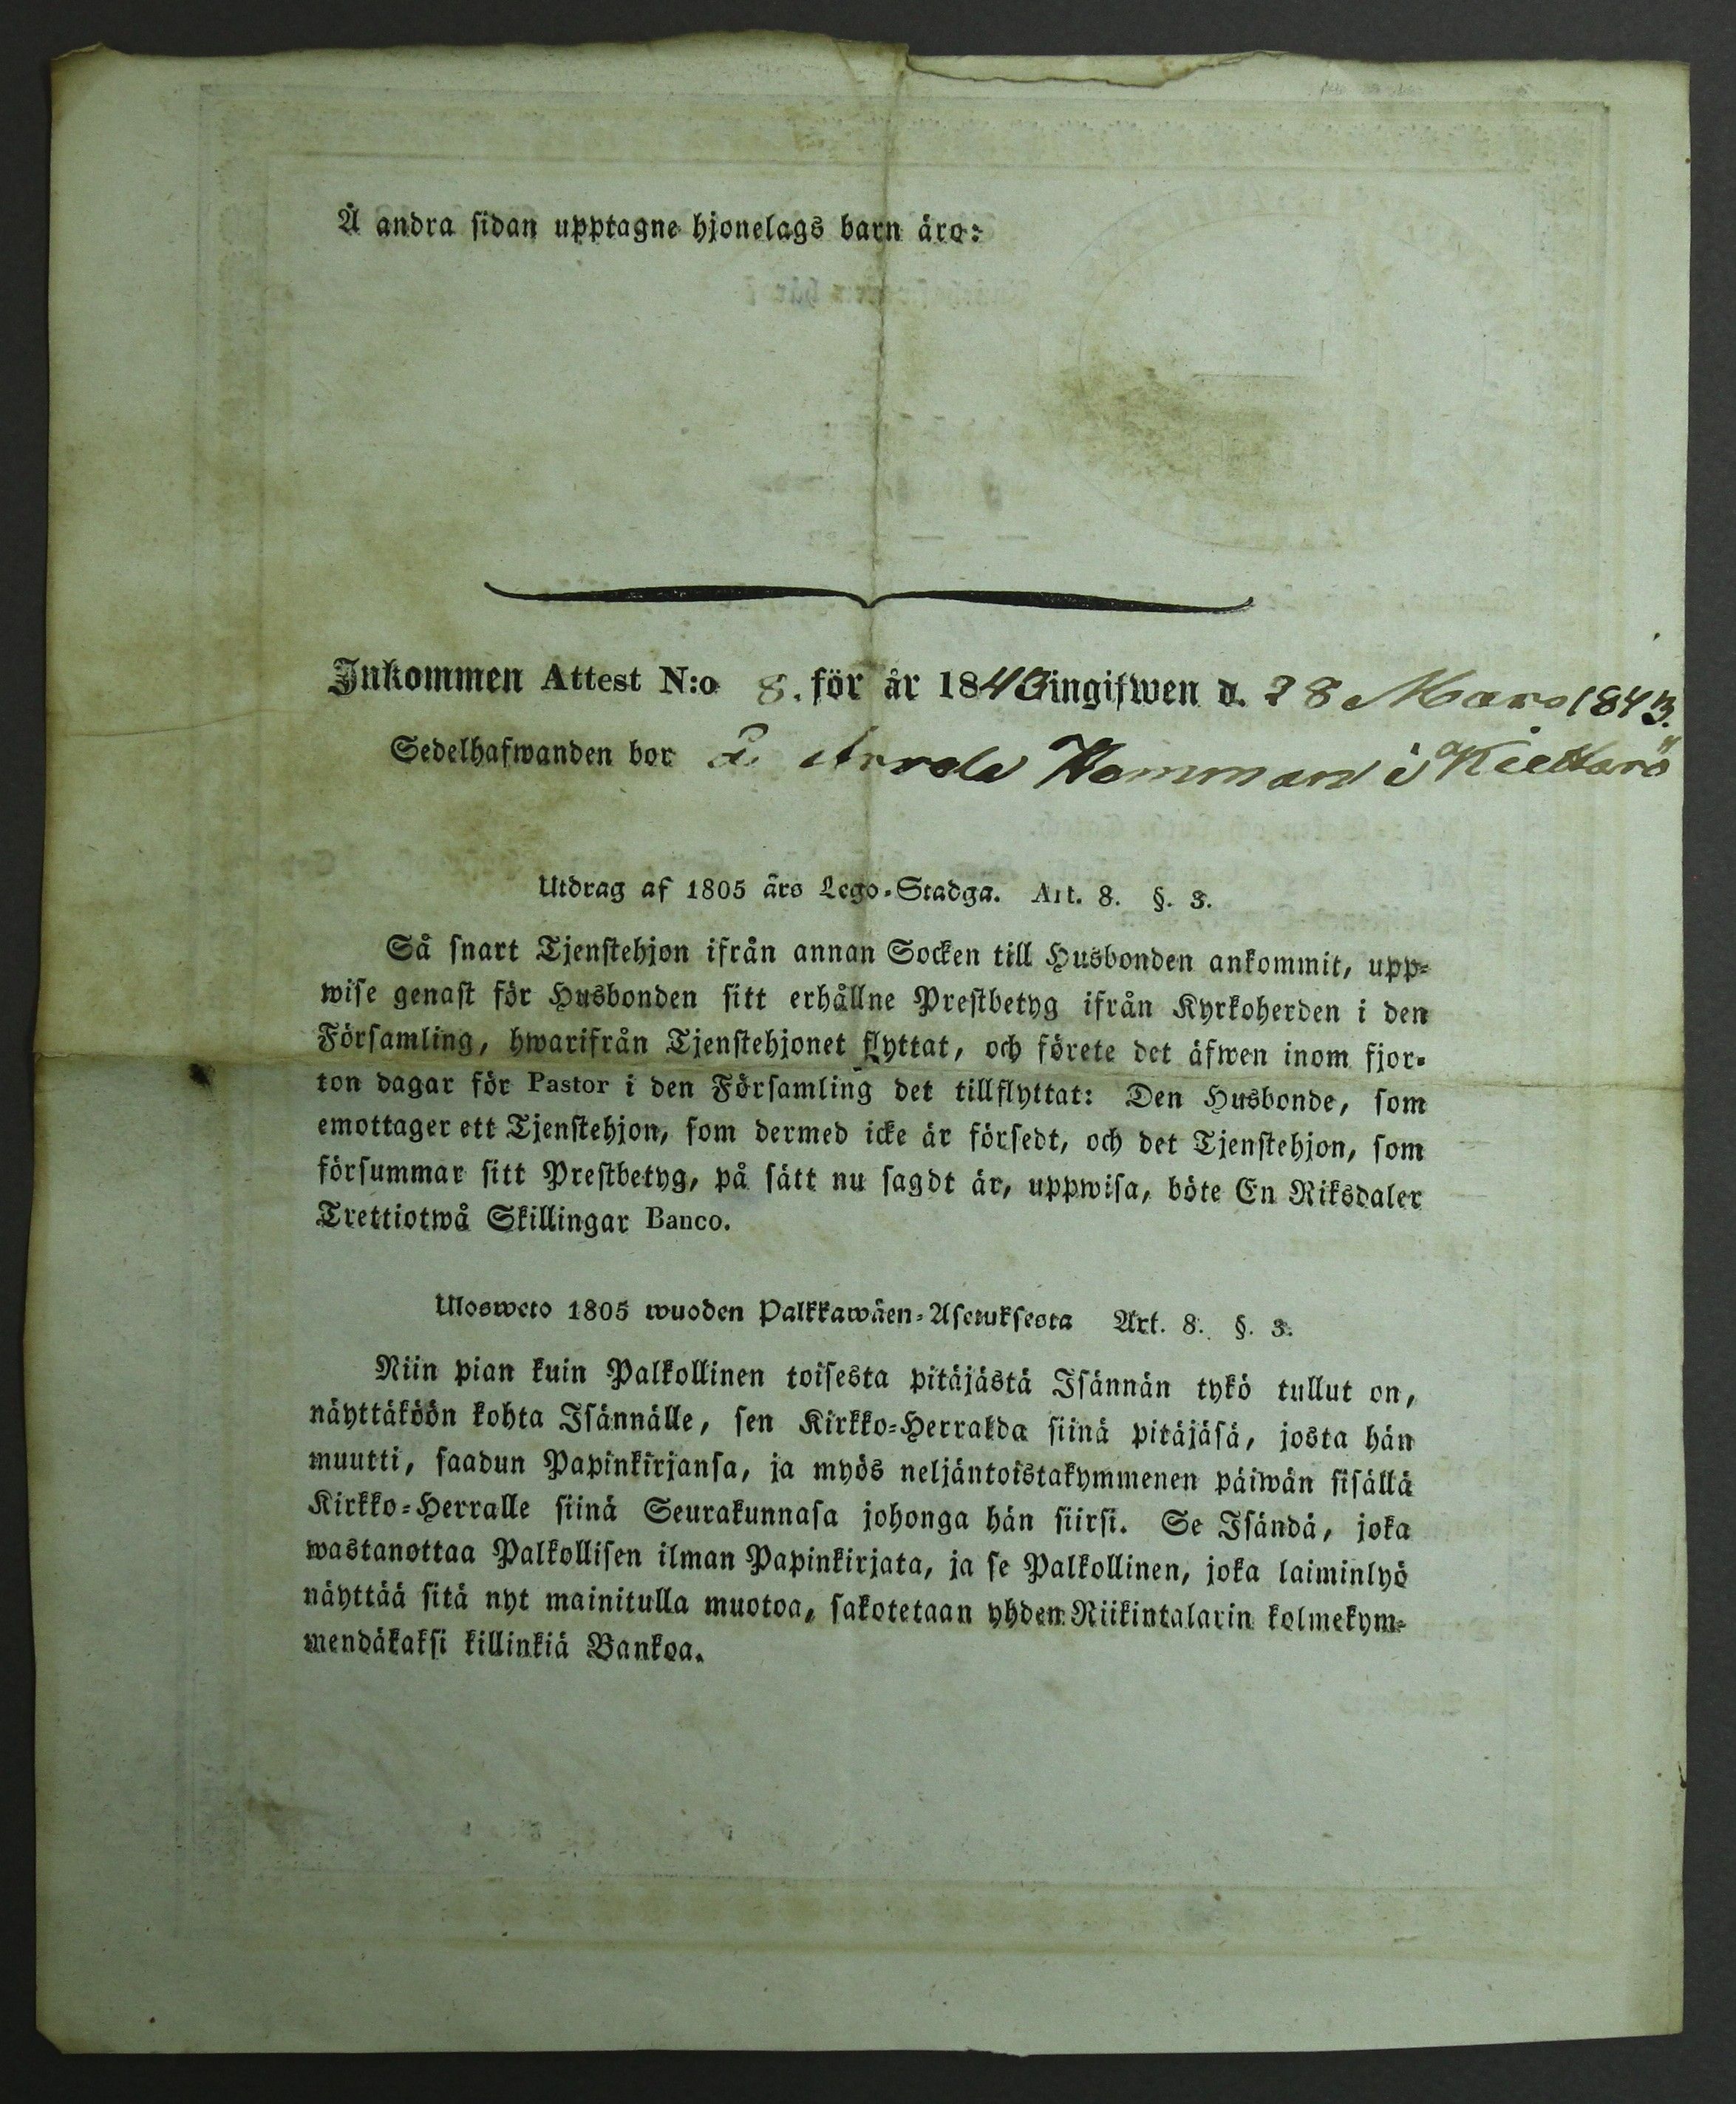 Å andra sidan upptagne hjonelags barn äro:
Inkommen Attest N:o 8. för år 1843 ingifwen d. 28 Mars 1843.
Sedelhafwanden bor å Arrola Hemman i
Utdrag af 1805 års Lego-Stadga. Art. 8. §. 3.
Så snart Tjenstehjon ifrån annan Socken till Husbonden ankommit, upp-
wise genast för Husbonden sitt erhållne Prestbetyg ifrån Kyrkoherden i den
Församling, hwarifrån Tjenstehjonet flyttat, och förete det äfwen inom fjor-
ton dagar för Pastor i den Församling det tillflyttat: Den Husbonde, som
emottager ett Tjenstehjon, som dermed icke är försedt, och det Tjenstehjon, som
försummar sitt Prestbetyg, på sätt nu sagdt är, uppwisa, böte En Riksdaler
Trettiotwå Skillingar Banco.
Ulosweto 1805 wuoden Palkkawäen-Asetuksesta Art. 8. §. 3.
Niin pian kuin Palkollinen toisesta pitäjästä Isännän tykö tullut on,
näyttäköön kohta Isännälle, sen Kirkko-Herralda siinä pitäjäsä, josta hän
muutti, saadun Papinkirjansa, ja myös neljäntoistakymmenen päiwän sisällä
Kirkko-Herralle siinä Seurakunnasa johonga hän siirsi. Se Isändä, joka
wastanottaa Palkollisen ilman Papinkirjata, ja se Palkollinen, joka laiminlyö
näyttää sitä nyt mainitulla muotoa, sakotetaan yhden Riikintalarin kolmekym-
mendäkaksi killinkiä Bankoa.